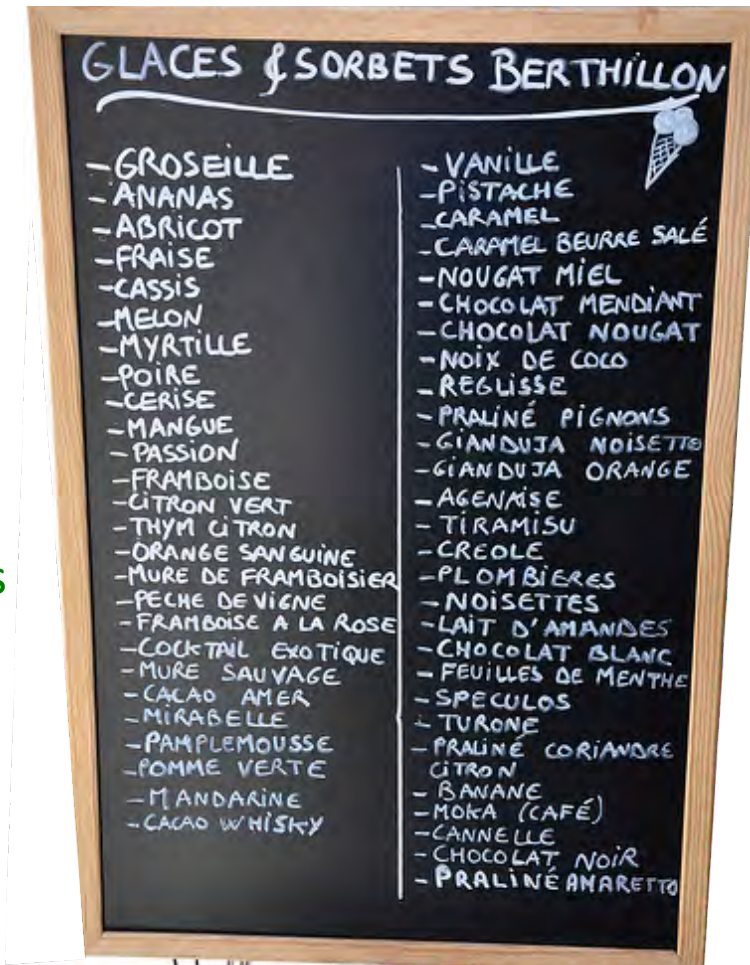 GLACES & SORBETS BERTHILLON
- GROSEILLE
- ANANAS
- ABRICOT
- FRAISE
- CASSIS
- MELON
- MYRTILLE
- POIRE
- CERISE
- MANGUE
- PASSION
- FRAMBOISE
- CITRON VERT
- THYM CITRON
- ORANGE SANGUINE
- MURE DE FRAMBOISIER
- PECHE DE VIGNE
- FRAMBOISE A LA ROSE
- COCKTAIL EXOTIQUE
- MURE SAUVAGE
- CACAO AMER
- MIRABELLE
- PAMPLEMOUSSE
- POMME VERTE
- MANDARINE
- CACAO WHISKY
- VANILLE
- PISTACHE
- CARAMEL
- CARAMEL BEURRE SALÉ
- NOUGAT MIEL
- CHOCOLAT MENDIANT
- CHOCOLAT NOUGAT
- NOIX DE COCO
- REGLISSE
- PRALINÉ PIGNONS
- GIANDUJA NOISETTO
- GIANDUJA ORANGE
- AGENAISE
- TIRAMISU
- CREOLE
- PLOMBIERES
- NOISETTES
- LAIT D'AMANDES
- CHOCOLAT BLANC
- FEUILLES DE MENTHE
- SPECULOS
- TURONE
- PRALINÉ CORIANDRE
CITRON
- BANANE
- MOKA (CAFÉ)
- CANNELLE
- CHOCOLAT NOIR
- PRALINÉ AMARETTO